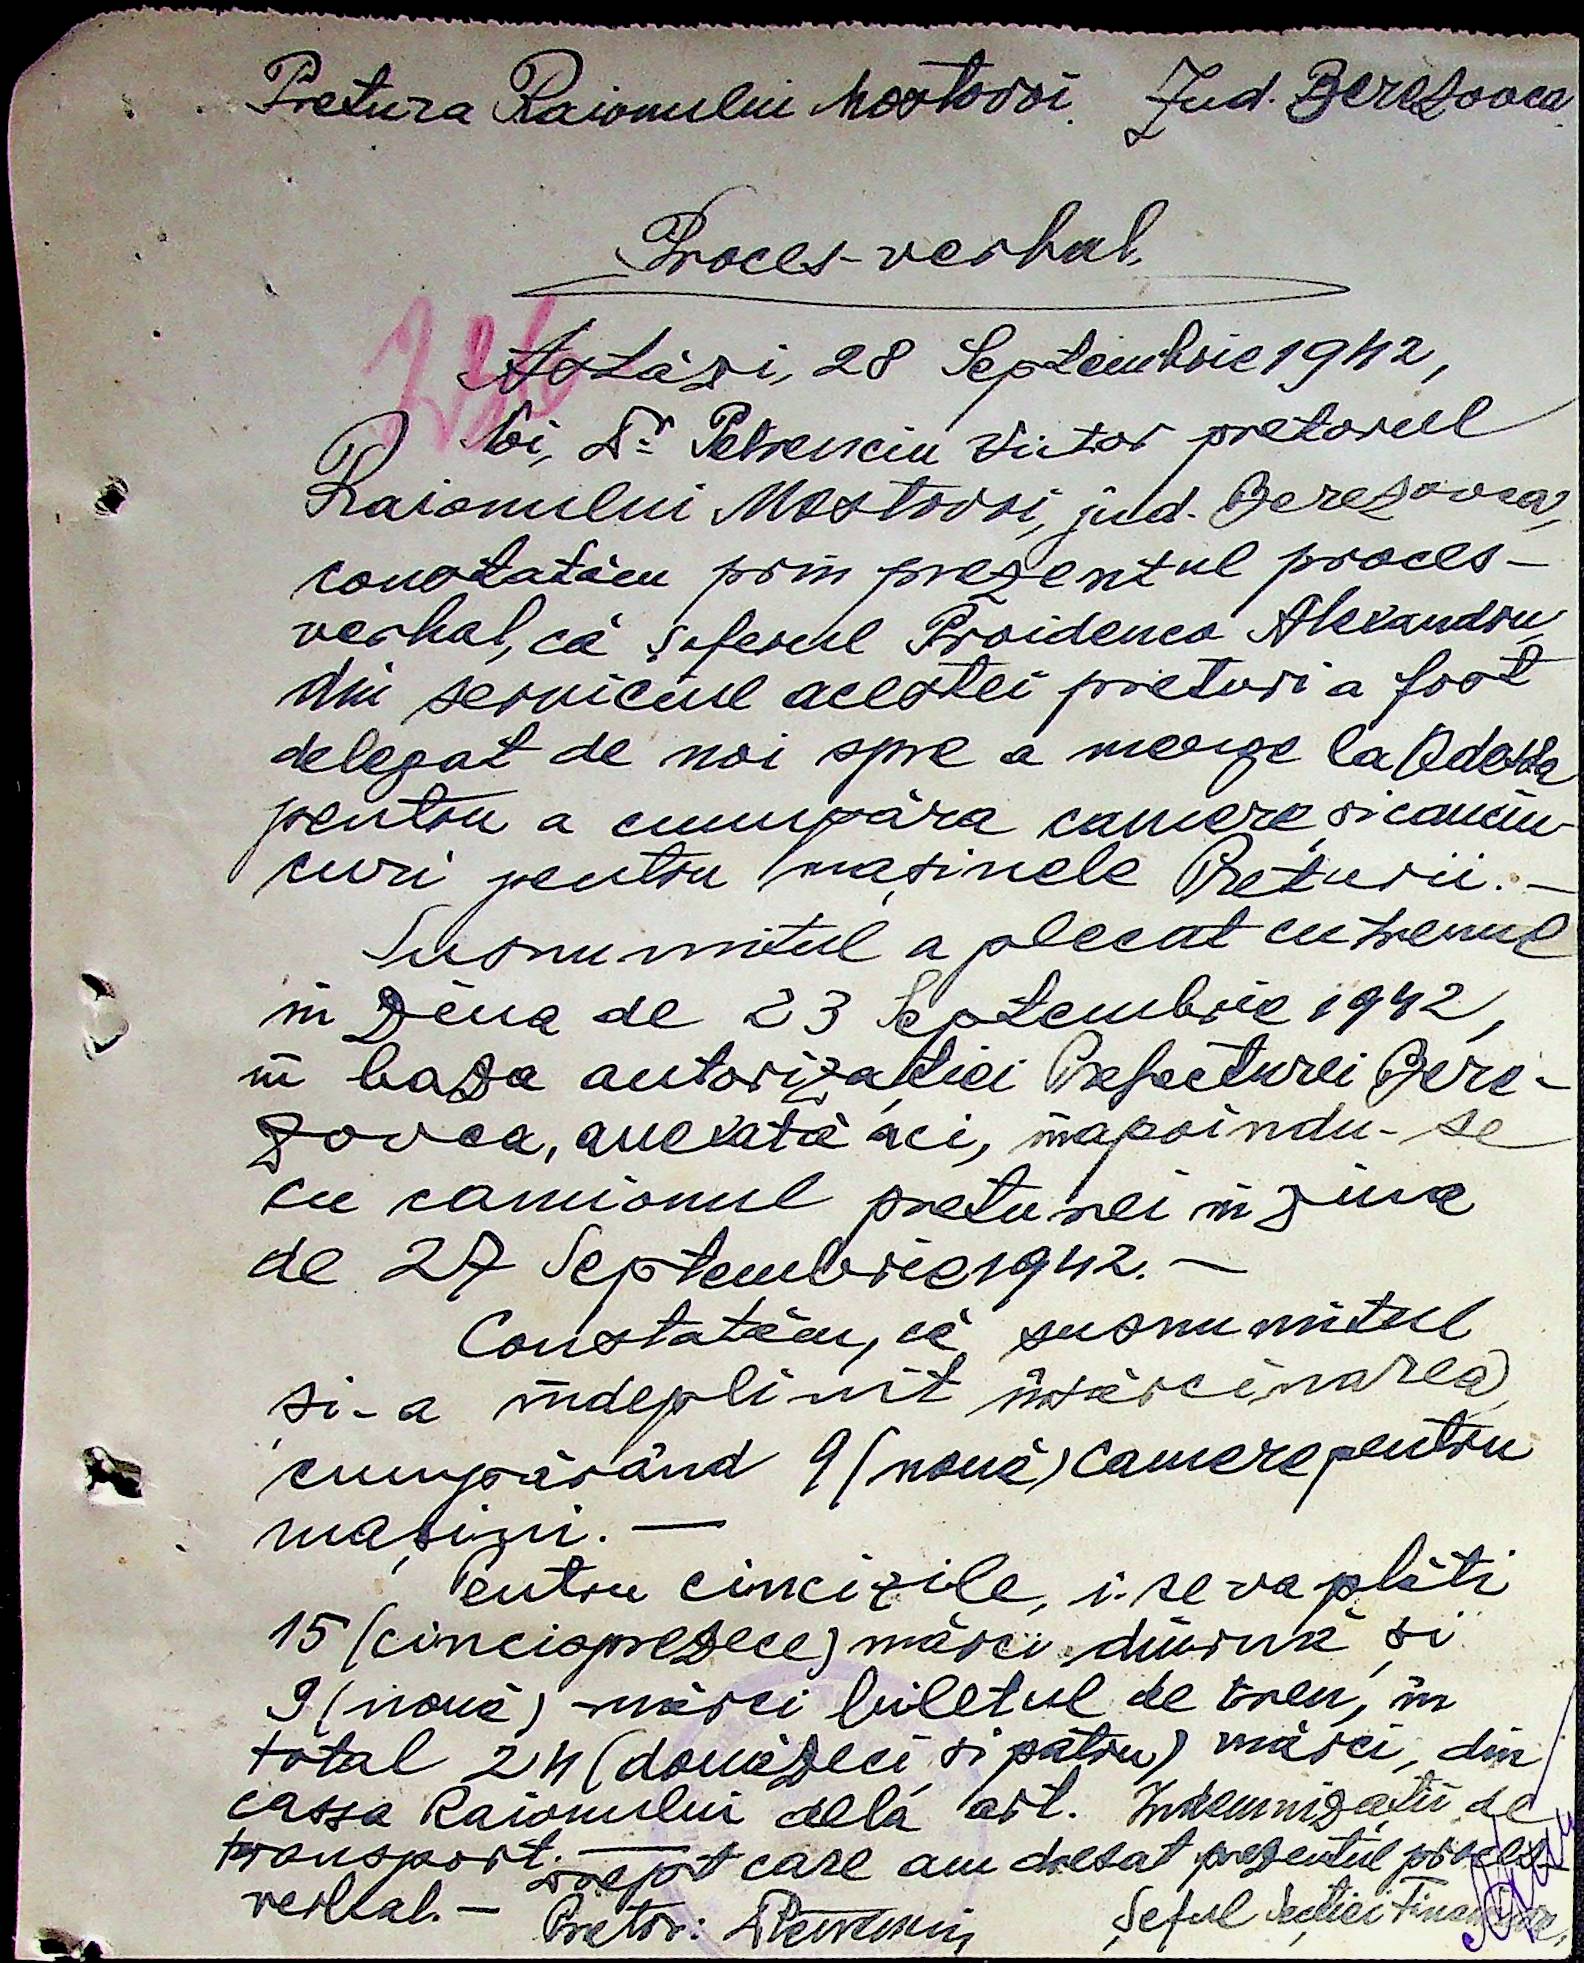 Pretura Raionului Mostovoi. Jud. Berezovca.
Proces-verbal.
Astăzi, 28 Septembrie 1942,
Noi, Dr. Petrenciu Victor pretorul
Raionului Mostovoi, jud. Berezovca,
constatăm prin prezentul proces-
verbal, că șoferul Proidenco Alexandru
din serviciul acestei preturi a fost
delegat de noi spre a merge la Odessa
pentru a cumpăra camere și cauciu-
curi pentru mașinele Preturii. -
Susnumitul a plecat cu trenul
în ziua de 23 Septembrie 1942,
în baza autorizației Prefecturei Bere-
zovca, anexată aci, înapoindu-se
cu camionul preturei în ziua
de 27 Septembrie 1942. -
Constatăm, că susnumitul
și-a îndeplinit însărcinarea
cumpărând 9 (nouă) camere pentru
mașini. -
Pentru cinci zile, i-se va plăti
15 (cincisprezece) mărci diurnă și
9 (nouă) mărci biletul de tren, în
total 24 (douăzeci și patru) mărci, din
cassa Raionului dela art. Indemnizații de
transport. -
Drept care am dresat prezentul proces
verbal. -
Pretor:
Șeful Secției Financiare,